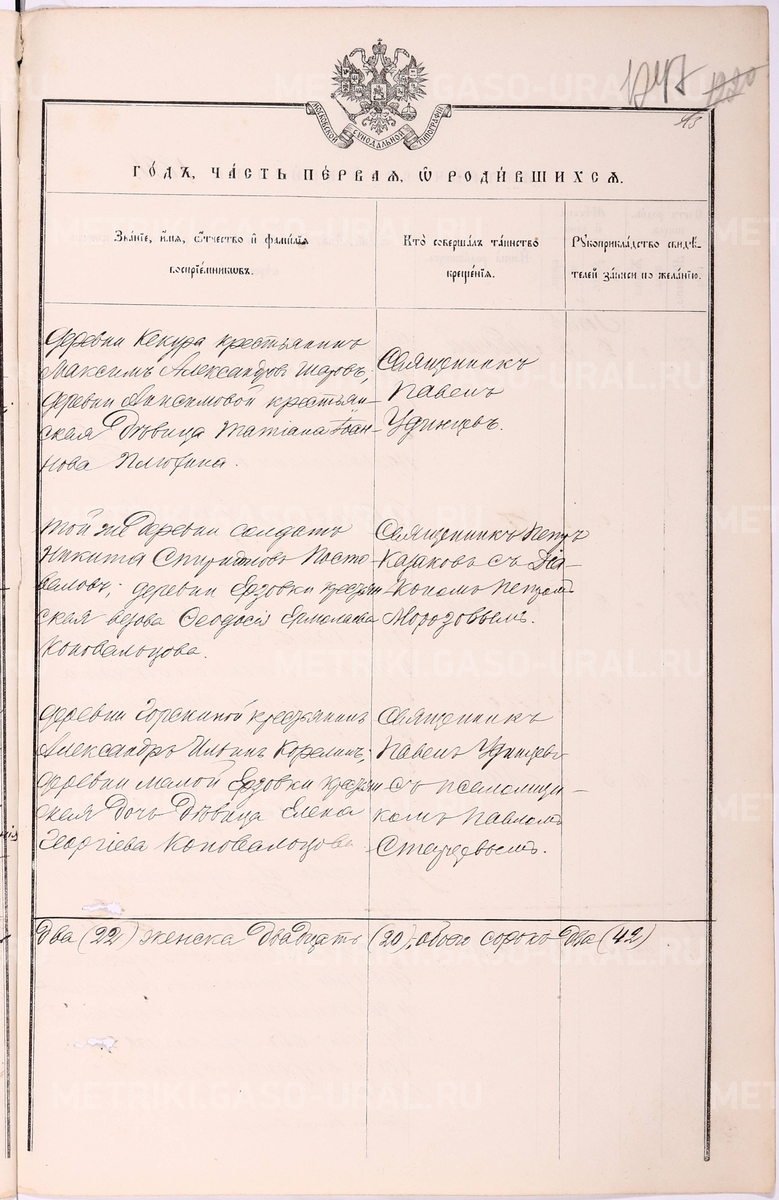 МОСКОВСКОЙ СѴНОДАЛЬНОЙ ТИПОГРАФІИ
ГО́ДЪ, ЧА́СТЬ ПЕ́РВАЯ, Ѡ РОДИ́ВШИХСЯ.
Зва́ніе, и́мя, о́тчество и фами́лія
воспріе́мниковъ.
Кто̀ соверша́лъ та́инство
креще́нія.
Рꙋкоприкла́дство свидѣ́-
телей за́писи по жела́нію.
деревни Кекура крестьянинъ
Максимъ Александровъ Шаровъ,
деревни Анисимовой крестьян-
ская дѣвица Татіана Іоан-
нова Плюхина.
Священникъ
Павелъ
Удинцевъ.
той же деревни солдатъ
Никита Спиридоновъ Посто-
валовъ; деревни Ерзовки крестьян
ская вдова Ѳеодосія Ермолаева
Коновальцова.
Священникъ Петръ
Казаковъ съ Діа-
кономъ Петромъ
Морозовымъ.
деревни крестьянинъ
Александръ Ильинъ Корелинъ;
деревни малой Ерзовки крестьян
ская дочь дѣвица Елена
Георгіева Коновальцова.
Священникъ
Павелъ Удинцевъ
съ псаломщи-
комъ Павломъ
Старцевымъ.
два (22) женска двадцать (20), обоего сорокъ два (42)
METRIKI.GASO-URAL.RU